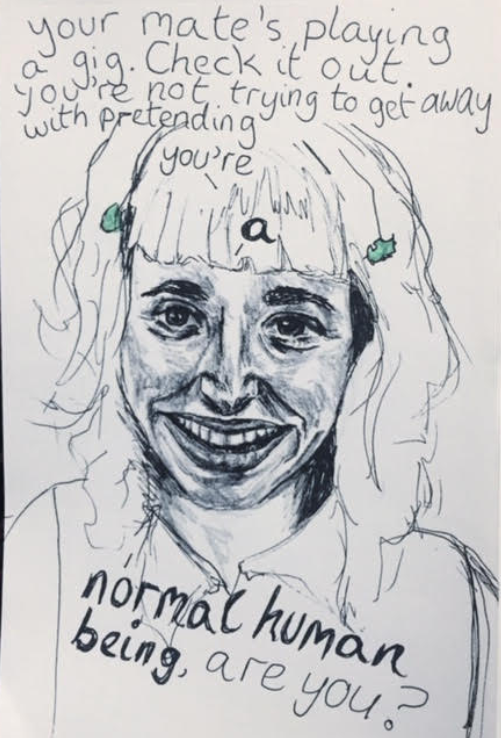 your mate's playing
a gig. Check it out.
you're not trying to get away
with pretending
you're
a
normal human
being, are you?